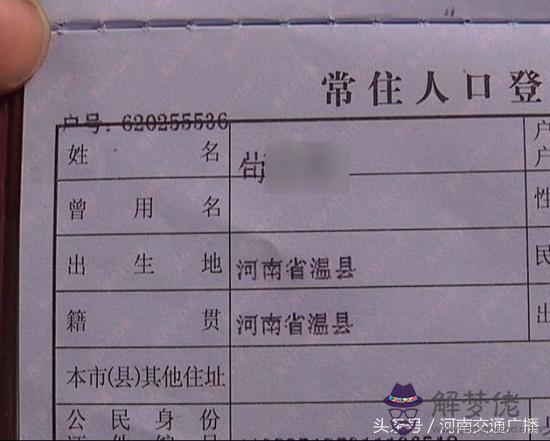 常住人口登
户号: 620255536
姓名
户
户
曾用名
性
出生地 河南省温县
民
籍贯 河南省温县
出
本市(县)其他住址
公民身份
解梦佬
头条号／河南交通广播